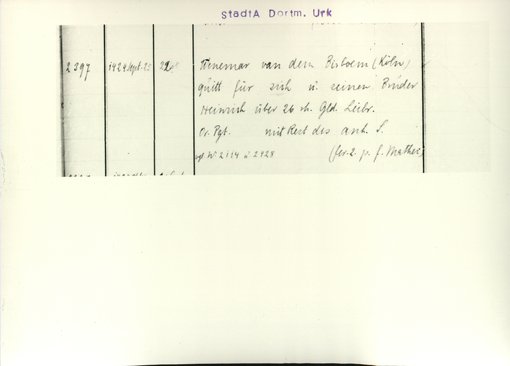 StadtA Dortm. Urk
2397 1424 Sept. 25 22 Tinemar van dem Birboem (Köln)
quitt für sich u. seinen Bruder
Heinrich über 26 rh. Gld. Leibr.
Or. Pgt. mit Rest des anh. S.
vgl. N° 2114 u. 2424 (fer. 2 p. f. Mathei)